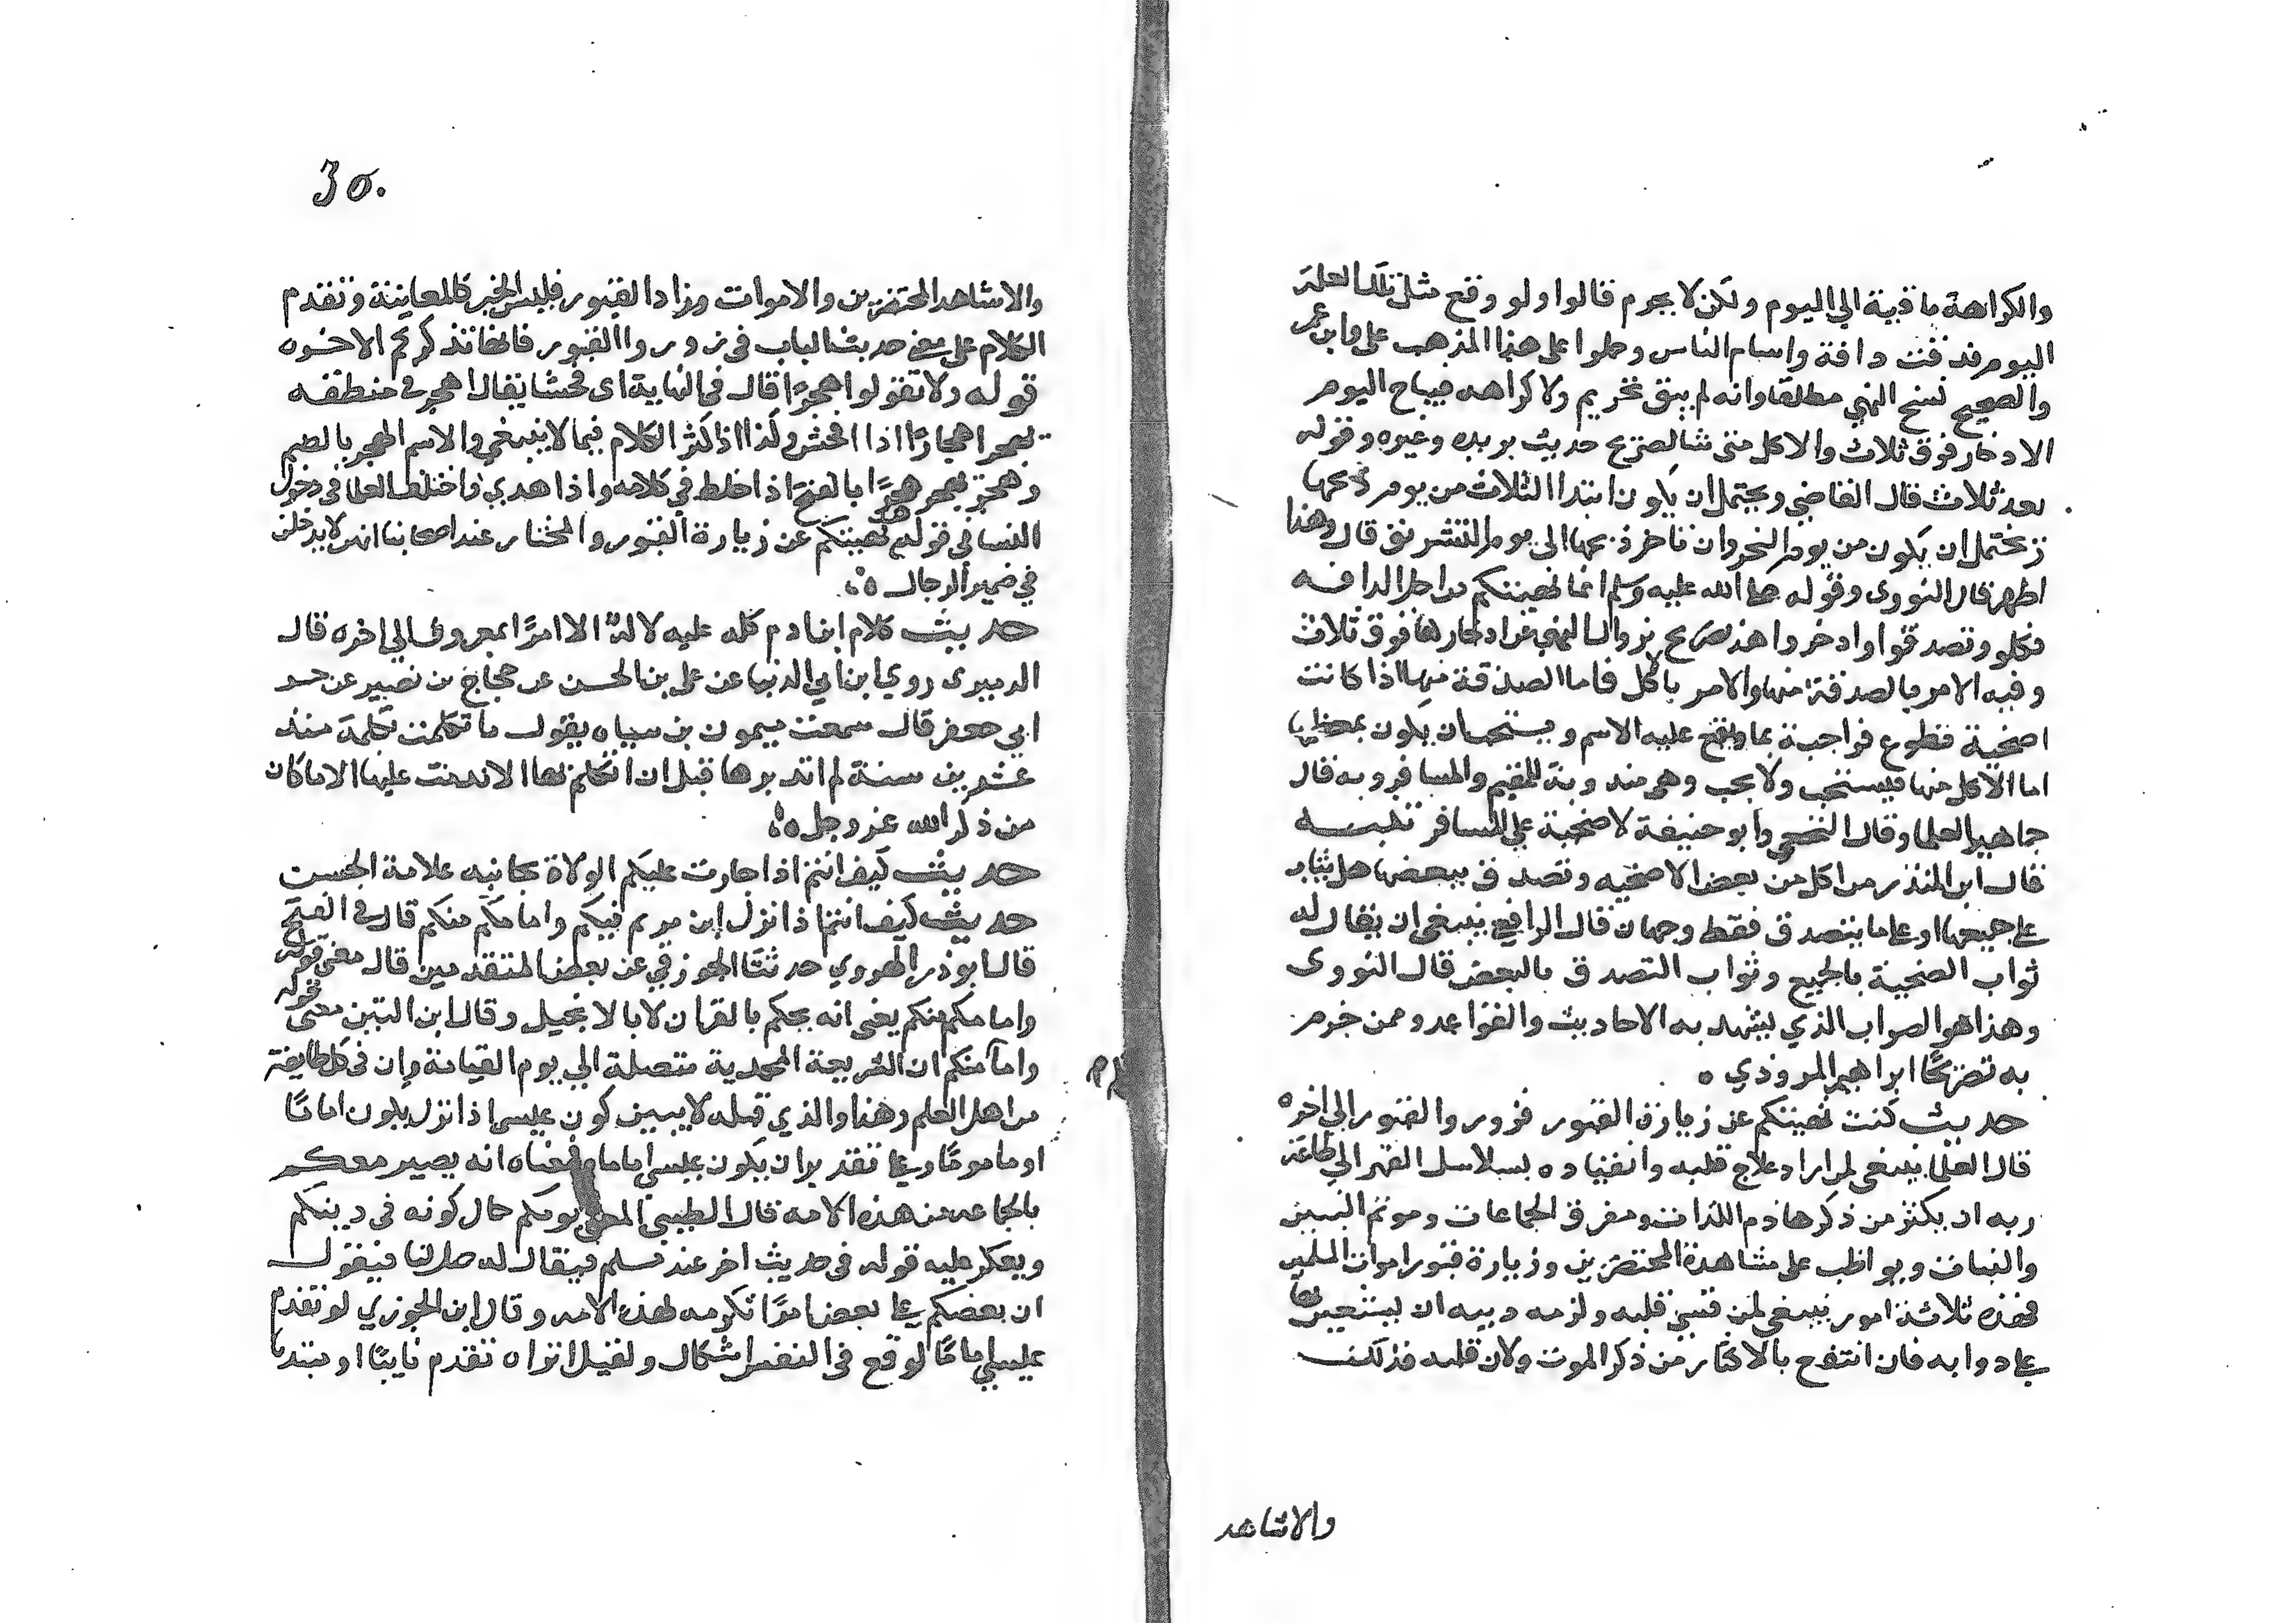 والكراهة باقية الي اليوم ولكن لا يحرم قالوا ولو وقع مثل تلك العلة
اليوم فدفت دافة واسام الناس وحملوا على هذا المذهب على وابن عمر
والصحيح نسخ النهي مطلقا وانه لم يبق تحريم ولا كراهه فيباح اليوم
الادخار فوق ثلاث والاكل متى شا لصريح حديث بريده وغيره وقوله
بعد ثلاث قال القاضي ويحتمل ان يكون ابتدا الثلاث من يوم ذبحها
ويحتمل ان يكون من يوم النحر وان تاخر ذبحها الى يوم التشريق قال وهذا
اظهر قال النووي وقوله صلى الله عليه وسلم انما نهيتكم من اجل الدافه
فكلو وتصدقوا وادخروا هذا تصريح بزوال النهي عن ادخارها فوق ثلاث
وفيه الامر بالصدقة منها والامر بالاكل فاما الصدقة منها اذا كانت
اضحية تطوع فواجبة بما يقع عليه الاسم ويستحب ان يكون بمعظمها
اما الاكل منها فيستحب ولا يجب وهي مندوبة للمقيم والمسافر وبه قال
جماهير العلما وقال النخعي وابو حنيفة لا ضحية على المسافر تنبيه
قال ابن المنذر من اكل من بعض الاضحيه وتصدق ببعضها هل يثاب
على جميعها او على ما يتصدق فقط وجهان قال الرافعي ينبغي ان يقال له
ثواب الضحية بالجميع وثواب التصدق بالبعض قال النووى
وهذا هو الصواب الذي يشهد به الاحاديث والقواعد وممن جزم
به تصريحًا ابراهيم المروذي ه
حديث كنت نهيتكم عن زيارة القبور فزوروا القبور الي اخره
قال العلما ينبغي لمن اراد علاج قلبه وانقياده بسلاسل القهر الي طاعة
ربه ان يكثر من ذكر هاذم اللذات ومفرق الجماعات وموتم البنين
والبنات ويواظب على مشاهدة المحتضرين وزيارة قبور اموات المسلمين
فهذه ثلاثة امور ينبغي لمن قسى قلبه ولزمه دبيه ان يستعين بها
على دوابه فان انتفع بالاكثار من ذكر الموت ولان قلبه فذلك
والاشاهد
30.
والاشاهد المحتضرين والاموات وزاد القبور فليس الخبر كالمعاينة وتقدم
الكلام على معنى حديث الباب في زوروا القبور فانها تذكركم الاخره
قوله ولا تقولوا هجرًا قال في النهاية اى فحشا يقال اهجر في منطقه
يهجر اهجارًا اذا افحش وكذا اذا كثر الكلام فيما لا ينبغي والاسم الهجر بالضم
وهجر يهجر هجرًا بالفتح اذا خلط في كلامه واذا هدى واختلف العلما في دخول
النسا في قوله نهيتكم عن زيارة القبور والمختار عند اصحابنا انهن لا يدخلن
في ضمير الرجال ه
حديث كلام ابن ادم كله عليه لا له الا امرًا بمعروف الي اخره قال
الدميرى روي ابن ابي الدنيا عن على بن الحسن عن حجاج بن نصير عن حسن
ابي جعفر قال سمعت ميمون بن سياه يقول ما تكلمت بكلمة منذ
عشرين سنة لم اتدبرها قبل ان اتكلم بها الا ندمت عليها الا ما كان
من ذكر الله عز وجل ه
حديث كيف انتم اذا جارت عليكم الولاة بجانبه علامة الحسن
حديث كيف انتم اذا نزل ابن مريم فيكم وامامكم منكم قال في الفتح
قال ابو ذر الهروي حدثنا الجوزقي عن بعض المتقدمين قال معنى قوله
وامامكم منكم يعني انه يحكم بالقران لا بالانجيل وقال ابن التين معنى قوله
وامامكم منكم ان الشريعة المحمدية متصلة الي يوم القيامة وان في كل طايفة
من اهل العلم وهذا والذي قبله لا يبين كون عيسى اذا نزل يكون امامًا
او ماموما وعلى تقدير ان يكون عيسى اماما فمعناه انه يصير معكم
بالجماعه من هذه الامه قال الطيبي المعنى يومكم حال كونه في دينكم
ويعكر عليه قوله في حديث اخر عند مسلم فيقال له صل لنا فيقول
ان بعضكم على بعض امرًا تكرمه لهذه الامه وقال ابن الجوزي لو تقدم
عيسى امامًا لوقع في النفس اشكال ولقيل اتراه تقدم نايبًا او مبتدا